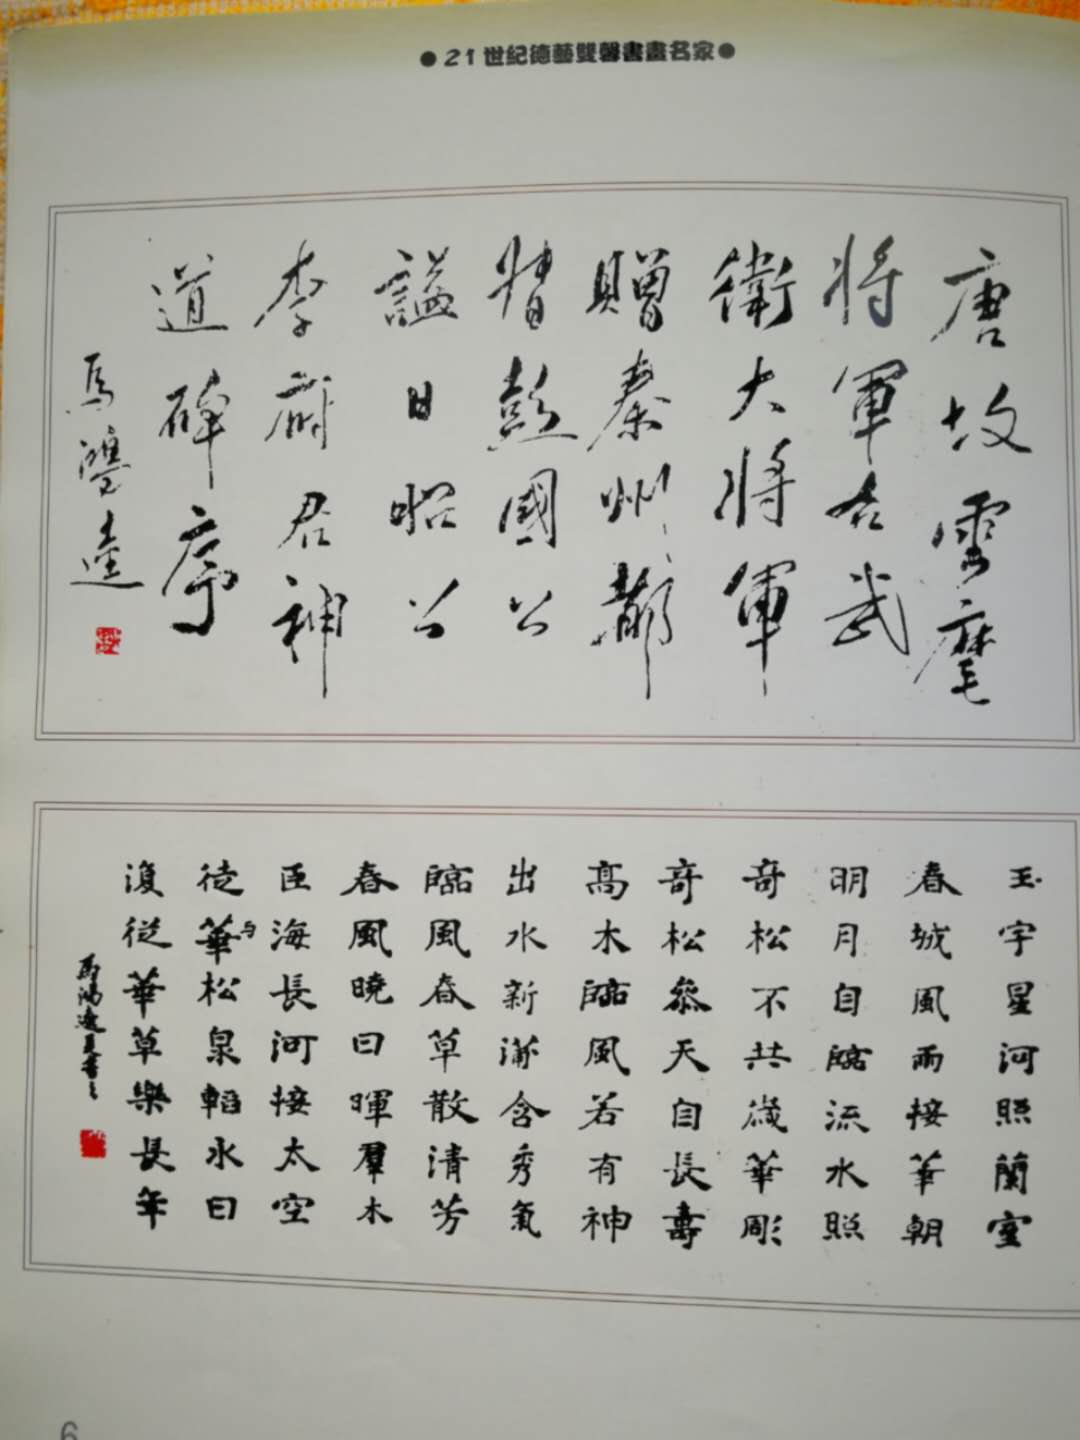 ●21世紀德藝雙馨書畫名家●
唐故雲麾
將軍右武
衛大將軍
贈秦州都
督彭國公
謚曰昭公
李府君神
道碑序
馬鴻逵
玉宇星河照蘭室
春城風雨接華朝
明月自臨流水照
奇松不共歲華彫
奇松參天自長壽
高木臨風若有神
出水新蒲含秀氣
臨風春草散清芳
春風曉日暉羣木
巨海長河接太空
徒華与松泉輊水曰
復從華草樂長年
6